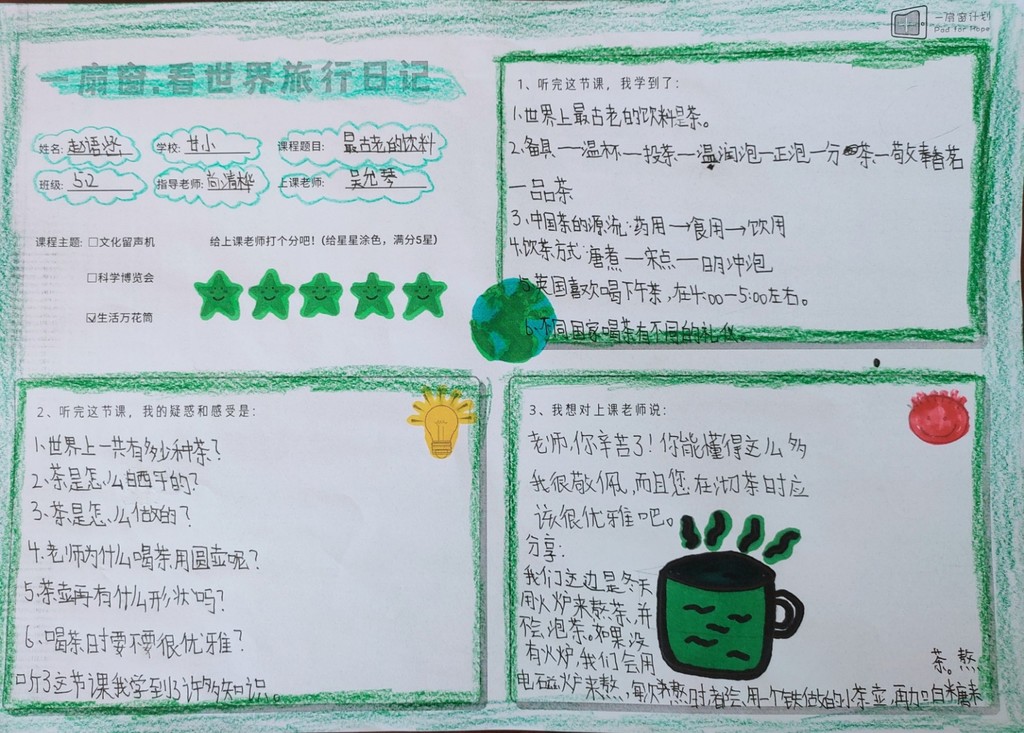 一扇窗计划
Pad for Hope
一扇窗,看世界旅行日记
姓名: 赵语涵 学校: 甘小 课程题目: 最古老的饮料
班级: 52 指导老师: 尚清桦 上课老师: 吴允琴
课程主题: □文化留声机 给上课老师打个分吧!(给星星涂色,满分5星)
□科学博览会
☑生活万花筒
1、听完这节课,我学到了:
1.世界上最古老的饮料是茶。
2.备具一温杯一投茶一温润泡一正泡一分茶一敬奉香茗
一品茶
3.中国茶的源流:药用→食用→饮用
4.饮茶方式:唐煮一宋点一明冲泡
5.英国喜欢喝下午茶,在4:00一5:00左右。
6.不同国家喝茶有不同的礼仪。
2、听完这节课,我的疑惑和感受是:
1.世界上一共有多少种茶?
2.茶是怎么晒干的?
3.茶是怎么做的?
4.老师为什么喝茶用圆壶呢?
5.茶壶再有什么形状吗?
6.喝茶时要不要很优雅?
听了这节课我学到了许多知识。
3、我想对上课老师说:
老师,你辛苦了!你能懂得这么多
我很敬佩,而且您在沏茶时应
该很优雅吧。
分享:
我们这边是冬天
用火炉来熬茶,并
不会泡茶。如果没
有火炉,我们会用
电磁炉来熬,每次熬时都会用一个铁做的小茶壶,再加白糖来
熬
茶。